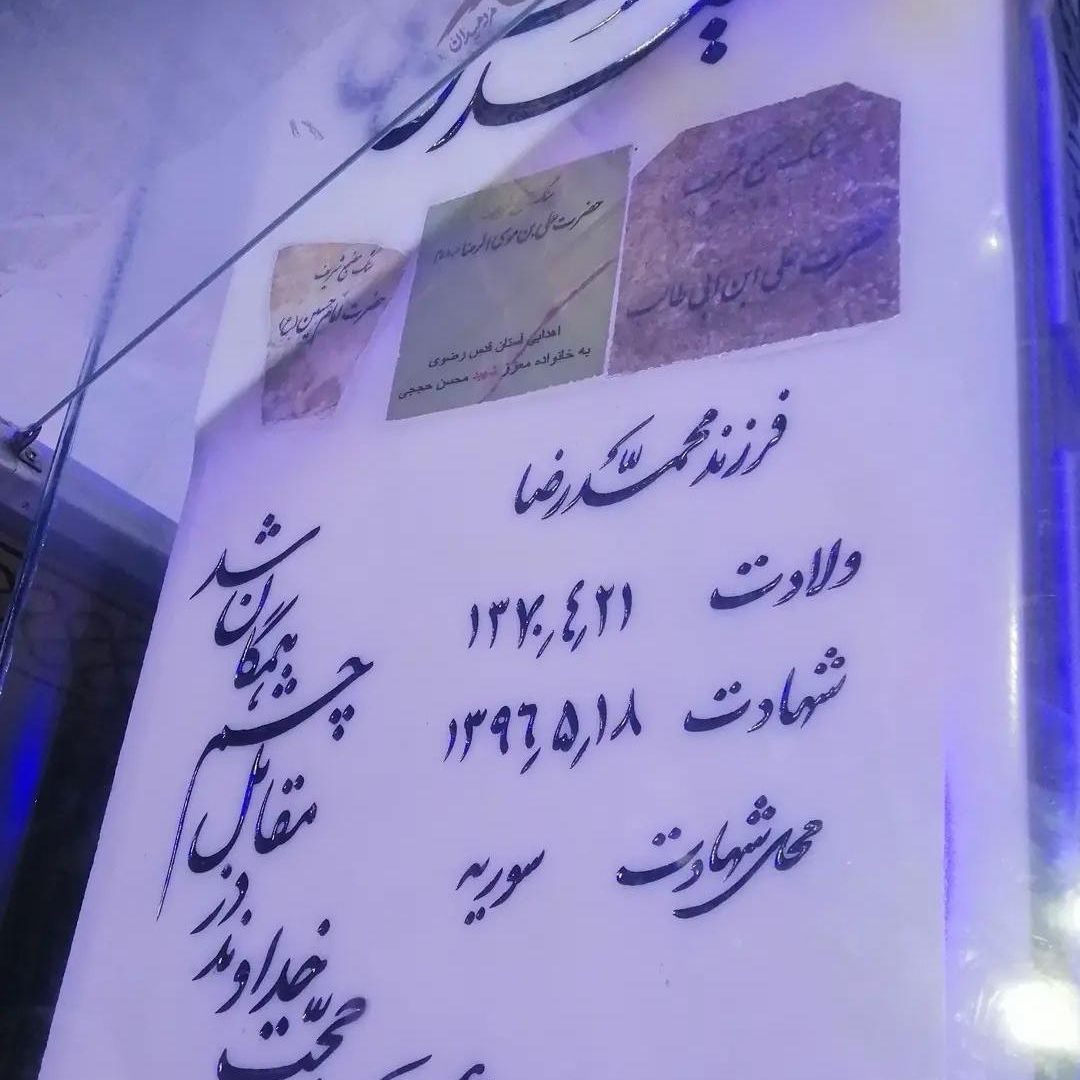 مرد میدان
سنگ مضجع شریف
حضرت علی ابن ابی طالب
حضرت علی بن موسی الرضا
اهدایی آستان قدس رضوی
به خانواده معزز شهید محسن حججی
سنگ مضجع شریف
حضرت امام حسین (ع)
فرزند محمدرضا
ولادت ۱۳۷۰٫۴٫۲۱
شهادت ۱۳۹۶٫۵٫۱۸
محل شهادت سوریه
حجت
خداوند
در
مقابل
چشم
همگان
شد